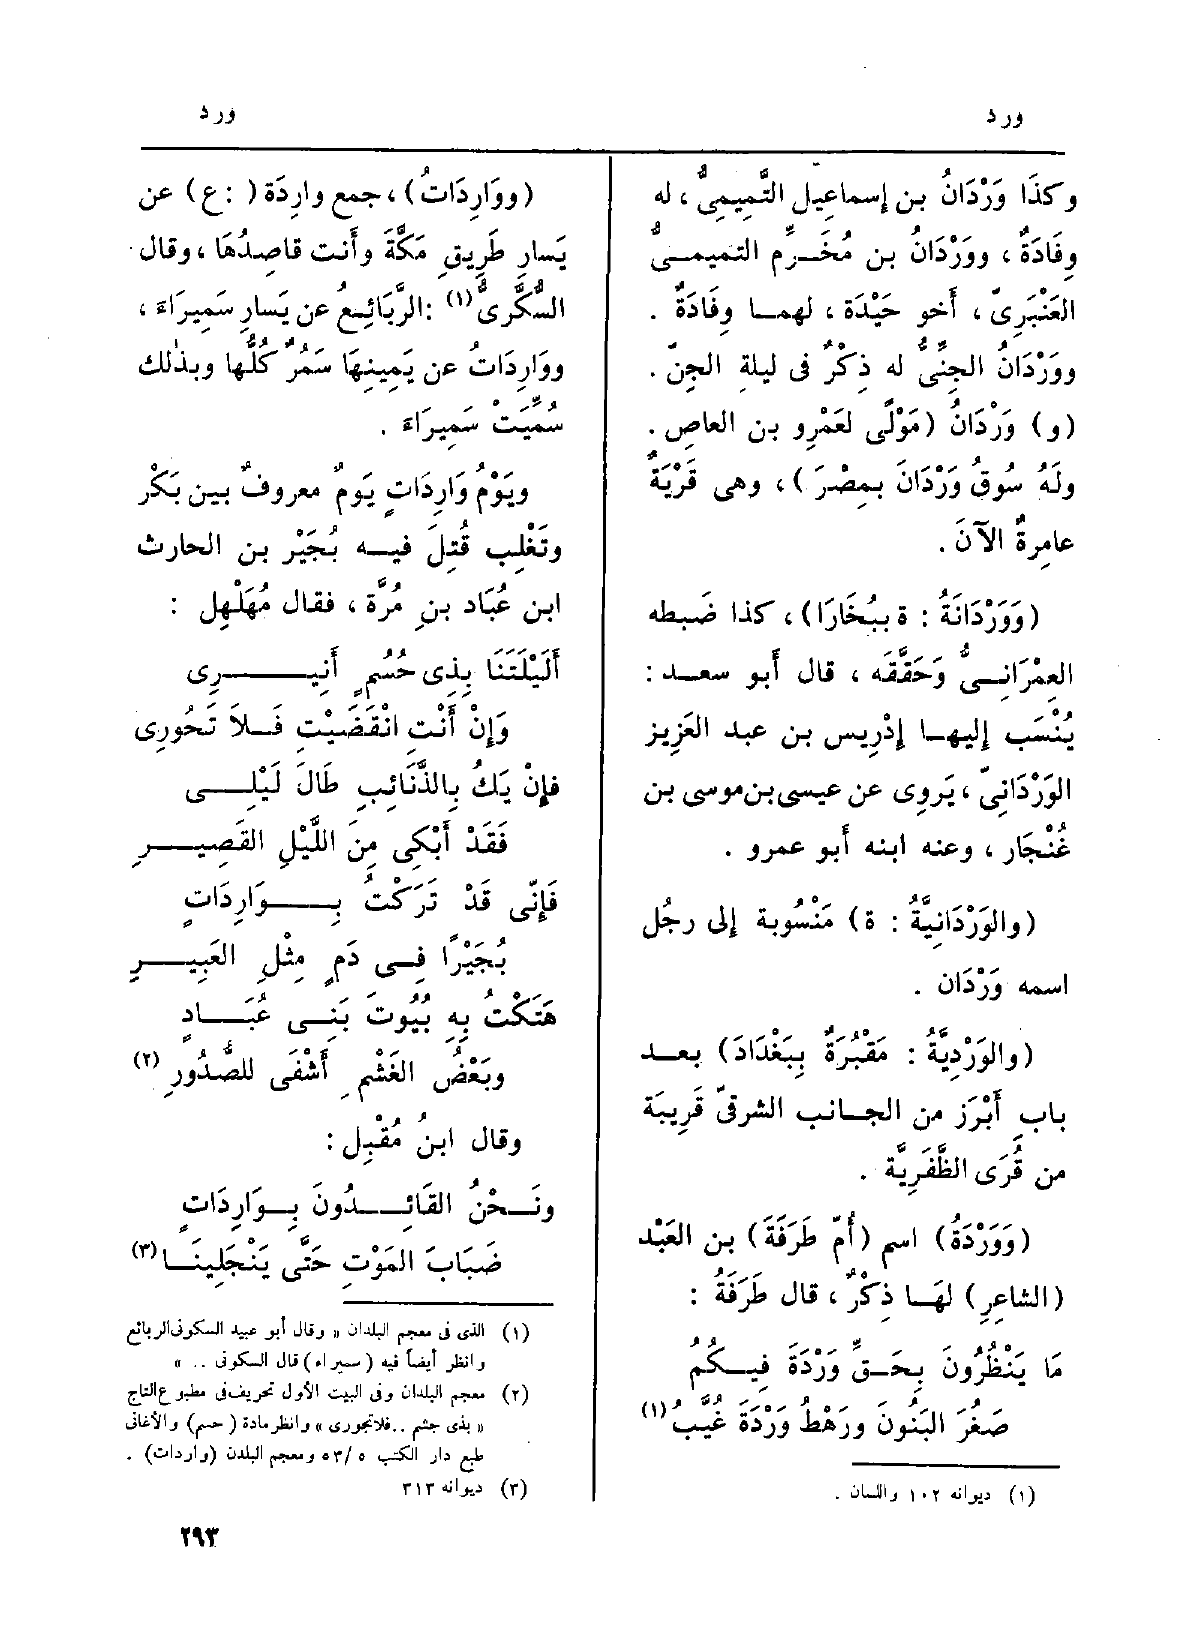 ورد
ورد
وكذَا وَرْدَانُ بن إسماعِيل التَّمِيمِىُّ ، له
وِفَادَةٌ ، ووَرْدَانُ بن مُخَرِّمٍ التميمىُّ
العَنْبَرِىّ ، أَخو حَيْدَة ، لهما وِفَادَةٌ .
ووَرْدَانُ الجِنِّىُّ له ذِكْرٌ فى ليلةِ الجِنّ .
(و) وَرْدَانُ (مَوْلًى لعَمْرِو بن العاصِ .
ولَهُ سُوقُ وَرْدَانَ بمِصْرَ) ، وهى قَرْيَةٌ
عامِرةٌ الآنَ .
(وَوَرْدَانَةُ : ة ببُخَارَا) ، كذا ضَبطه
العِمْرَانِىُّ وَحَقَّقَه ، قال أَبو سعد :
يُنْسَب إِليها إِدْرِيس بن عبد العَزِيز
الوَرْدَانِىّ ، يَروِى عن عيسى بن موسى بن
غُنْجَار ، وعنه ابنه أَبو عمرو .
(والوَرْدَانِيَّةُ : ة) مَنْسُوبة إِلى رجُل
اسمه وَرْدَان .
(والوَرْدِيَّةُ : مَقْبُرَةٌ بِبَغْدَادَ) بعد
بابِ أَبْرَزَ من الجانب الشرقىّ قَرِيبَة
من قُرَى الظَّفَرِيَّة .
(وَوَرْدَةُ) اسم (أُمّ طَرَفَةَ) بن العَبْد
(الشاعرِ) لهَا ذِكْرٌ ، قال طَرَفَةُ :
مَا يَنْظُرُونَ بِحَقِّ وَرْدَةَ فِيكُمُ
صَغُرَ البَنُونَ ورَهْطُ وَرْدَةَ غُيَّبُ (١)
(١) ديوانه ١٠٢ واللسان .
(ووَارِدَاتُ) ، جمع وارِدَة ( : ع) عن
يَسارِ طَرِيقِ مَكَّةَ وأَنت قاصِدُهَا ، وقال
السُّكَّرِىُّ (١) : الرَّبَائِعُ عن يَسارِ سَمِيرَاءَ ،
ووَارِدَاتُ عن يَمِينِهَا سَمُرٌ كُلُّها وبذٰلك
سُمِّيَتْ سَمِيرَاءَ .
ويَوْمُ وَارِدَاتٍ يَومٌ معروفٌ بين بَكْر
وتَغْلِب قُتِلَ فيه بُجَيْر بن الحارث
ابن عُبَاد بنِ مُرَّة ، فقال مُهَلْهِل :
أَلَيْلَتَنَا بِذِى حُسُمٍ أَنِيرِى
وَإِنْ أَنْتِ انْقَضَيْتِ فَلاَ تَحُورِى
فإِنْ يَكُ بِالذَّنَائِبِ طَالَ لَيْلِى
فَقَدْ أَبْكِى مِنَ اللَّيْلِ القَصِيرِ
فَإِنِّى قَدْ تَرَكْتُ بِوَارِدَاتٍ
بُجَيْرًا فِى دَمٍ مِثْلِ العَبِيرِ
هَتَكْتُ بِهِ بُيُوتَ بَنِى عُبَادٍ
وبَعْضُ الغَشْمِ أَشْفَى للصُّدُورِ (٢)
وقال ابنُ مُقْبِل :
ونَحْنُ القَائِدُونَ بِوَارِدَاتٍ
ضَبَابَ المَوْتِ حَتَّى يَنْجَلِينَا (٣)
(١) الذى فى معجم البلدان « وقال أبو عبيد السكونى الربائع
وانظر أيضاً فيه (سميراء) قال السكونى .. »
(٢) معجم البلدان وفى البيت الأول تحريف فى مطبوع التاج
« بذى جشم .. فلا تجورى » وانظر مادة (حسم) والأغانى
طبع دار الكتب ٥/ ٥٣ ومعجم البلدن (واردات) .
(٣) ديوانه ٣١٣
٢٩٣